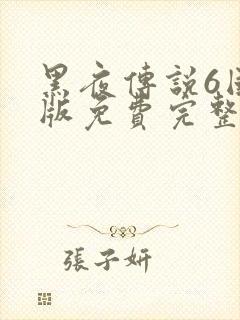 黑夜傳說6國
版免費完整
張子妍